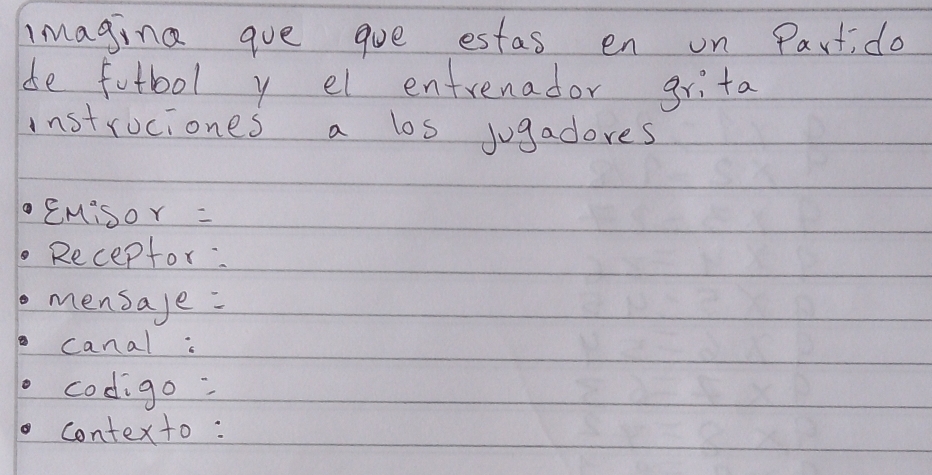 imagina que que estas en un Partido
de futbol y el entrenador grita
instruciones a los jugadores
• EMisor =
• Receptor :
• mensaje =
• canal :
• codigo =
• contexto :